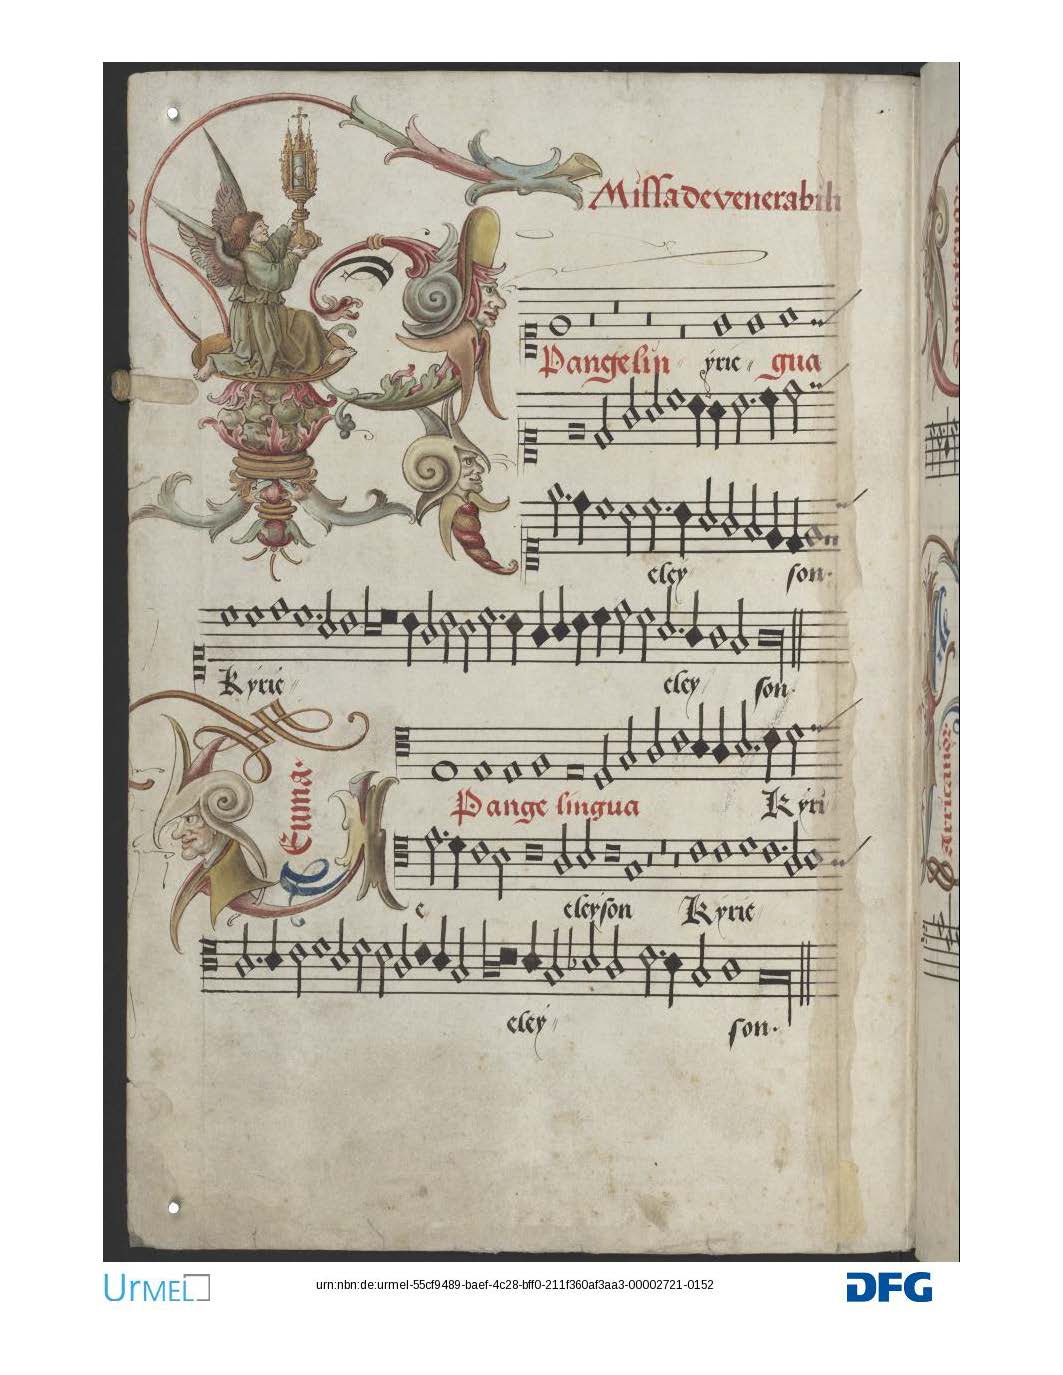 Missa de venerabili
Pange lin yrie gua
eley son.
Kyrie eley son.
Tenor
Pange lingua Kyri
e eleyson Kyrie
eley son.
UrMEL
urn:nbn:de:urmel-55cf9489-baef-4c28-bff0-211f360af3aa3-00002721-0152
DFG